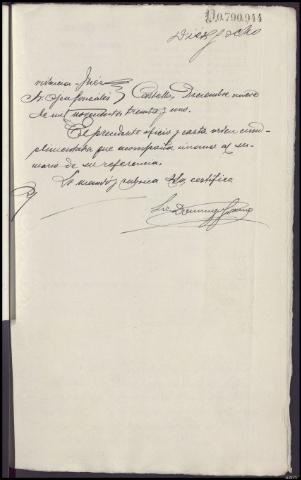 D0.790,944
Dieciocho
videncia Juez
Sr. Epa González } Castellón Diciembre nueve
de mil novecientos treinta y uno.
El precedente oficio y carta orden cum-
plimentada que acompaña únanse al su-
mario de su referencia.
Lo mandó y rubrica SSª certifico
Domingo